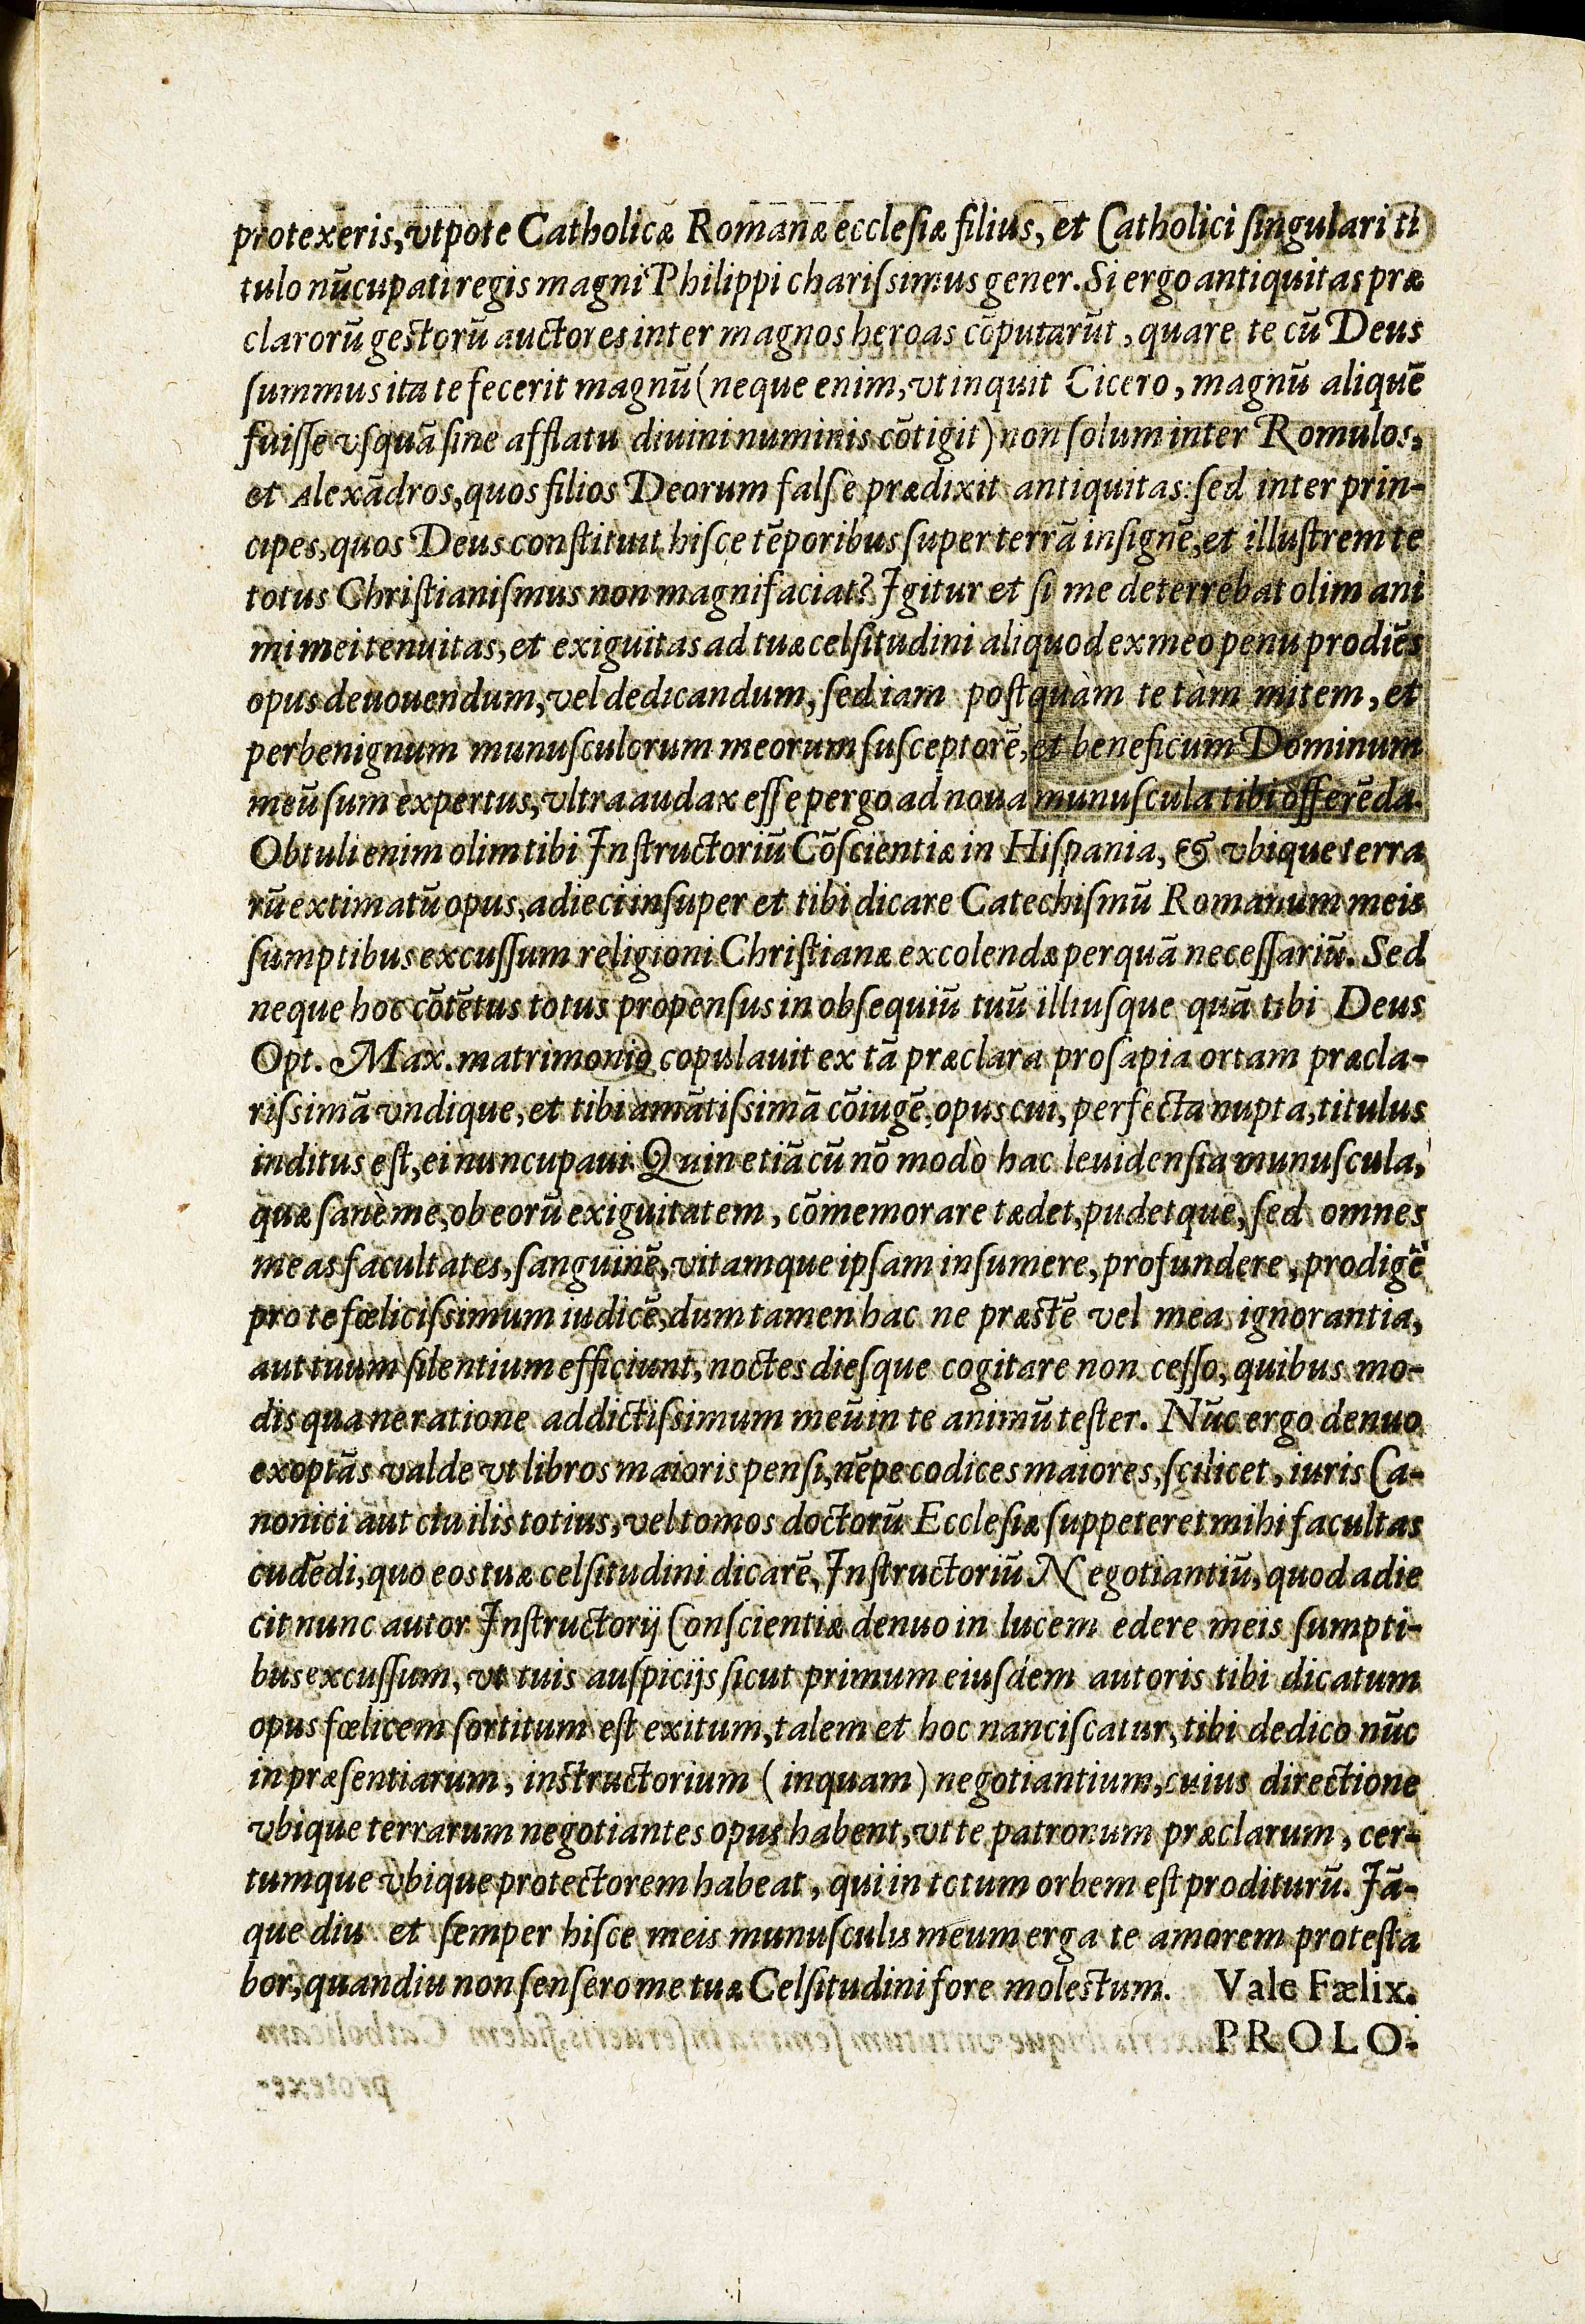 protexeris, vtpote Catholicæ Romanæ ecclesiæ filius, et Catholici singulari ti
tulo nũcupati regis magni Philippi charissimus gener. Si ergo antiquitas præ
clarorũ gestorũ auctores inter magnos heroas cõputarũt, quare te cũ Deus
summus ita te fecerit magnũ (neque enim, vt inquit Cicero, magnũ aliquẽ
fuisse vsquã sine afflatu diuini numinis cõtigit) non solum inter Romulos,
et Alexãdros, quos filios Deorum falsè prædixit antiquitas: sed inter prin-
cipes, quos Deus constituit hisce tẽporibus super terrã insignẽ, et illustrem te
totus Christianismus non magni faciat? Igitur et si me deterrebat olim ani
mi mei tenuitas, et exiguitas ad tuæ celsitudini aliquod ex meo penu prodiẽs
opus deuouendum, vel dedicandum, sed iam postquàm te tàm mitem, et
perbenignum munusculorum meorum susceptorẽ, et beneficum Dominum
meũ sum expertus, vltra audax esse pergo ad noua munuscula tibi offerẽda.
Obtuli enim olim tibi Instructoriũ Cõscientiæ in Hispania, & vbique terra
rũ extimatũ opus, adieci insuper et tibi dicare Catechismũ Romanum meis
sumptibus excussum religioni Christianæ excolendæ perquã necessariũ. Sed
neque hoc cõtẽtus totus propensus in obsequiũ tuũ illiusque quã tibi Deus
Opt. Max. matrimonio copulauit ex tã præclara prosapia ortam præcla-
rissimã vndique, et tibi amãtissimã cõiugẽ, opus cui, perfecta nupta, titulus
inditus est, ei nuncupaui. Quin etiã cũ nõ modò hac leuidensia munuscula,
quæ sanè me, ob eorũ exiguitatem, cõmemorare tædet, pudetque, sed omnes
meas facultates, sanguinẽ, vitamque ipsam insumere, profundere, prodigẽ
pro te fœlicissimum iudicẽ, dum tamen hac ne præstẽ vel mea ignorantia,
aut tuum silentium efficiunt, noctes diesque cogitare non cesso, quibus mo-
dis qua ne ratione addictissimum meũ in te animũ tester. Nũc ergo denuo
exoptãs valde vt libros maioris pensi, nẽpe codices maiores, scilicet, iuris Ca-
nonici aut ciuilis totius, vel tomos doctorũ Ecclesiæ suppeteret mihi facultas
cudẽdi, quo eos tuæ celsitudini dicarẽ, Instructoriũ Negotiantiũ, quod adie
cit nunc autor Instructorij Conscientiæ denuo in lucem edere meis sumpti-
bus excussum, vt tuis auspicijs sicut primum eiusdem autoris tibi dicatum
opus fœlicem sortitum est exitum, talem et hoc nanciscatur, tibi dedico nũc
in præsentiarum, instructorium (inquam) negotiantium, cuius directione
vbique terrarum negotiantes opus habent, vt te patronum præclarum, cer-
tumque vbique protectorem habeat, qui in totum orbem est proditurũ. Iã-
que diu et semper hisce meis munusculis meum erga te amorem protesta
bor, quandiu non sensero me tuæ Celsitudini fore molestum. Vale Fælix.
PROLO-